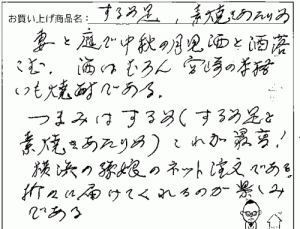 お買い上げ商品名：するめ足，素焼きあたりめ
妻と庭で中秋の月見酒と洒落
こむ。酒はむろん宮崎の本格
いも焼酎である。
つまみはするめ（するめ足と
素焼きあたりめ）これが最高！
横浜の孫娘のネット注文である。
折々に届けてくれるのが楽しみ
である